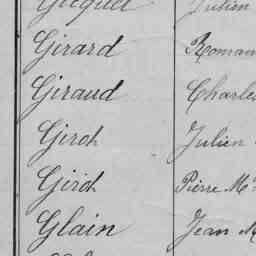 Gicquel Julien
Girard Romain
Giraud Charles
Giroh Julien
Giroh Pierre M
Glain Jean M